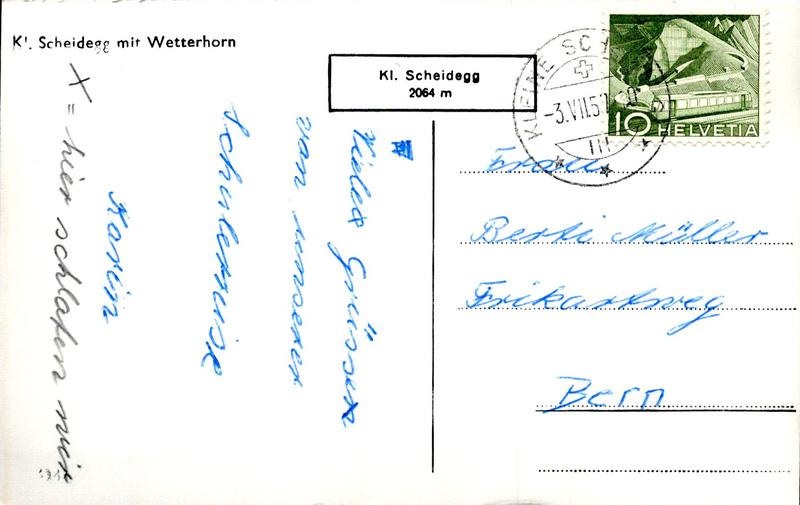 Kl. Scheidegg mit Wetterhorn
Kl. Scheidegg
2064 m
KLEINE SCH
-3.VII.5
10 HELVETIA
Viele Grüsse
von unserer
Schulerreise
Karin
X = hier schlafen wir
Frau
Berti Müller
Frikartweg
Bern